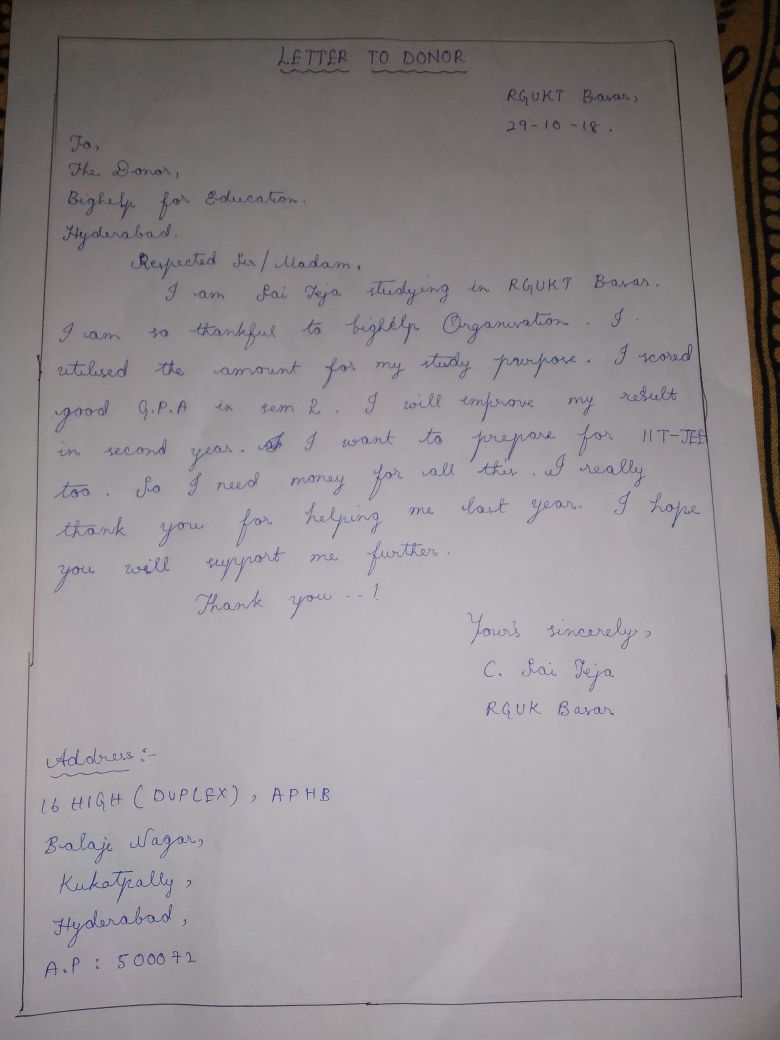 LETTER TO DONOR
RGUKT Basar,
29-10-18.
To,
The Donor,
Bighelp for Education.
Hyderabad.
Respected Sir/Madam,
I am Sai Teja studying in RGUKT Basar.
I am so thankful to bighelp Organisation. I
utilised the amount for my study purpose. I scored
good G.P.A in sem 2. I will improve my result
in second year. I want to prepare for IIT-JEE
too. So I need money for all this. I really
thank you for helping me last year. I hope
you will support me further.
Thank you --!
Your's sincerely,
C. Sai Teja
RGUK Basar
Address:-
16 HIGH (DUPLEX), APHB
Balaji Nagar,
Kukatpally,
Hyderabad,
A.P : 500072